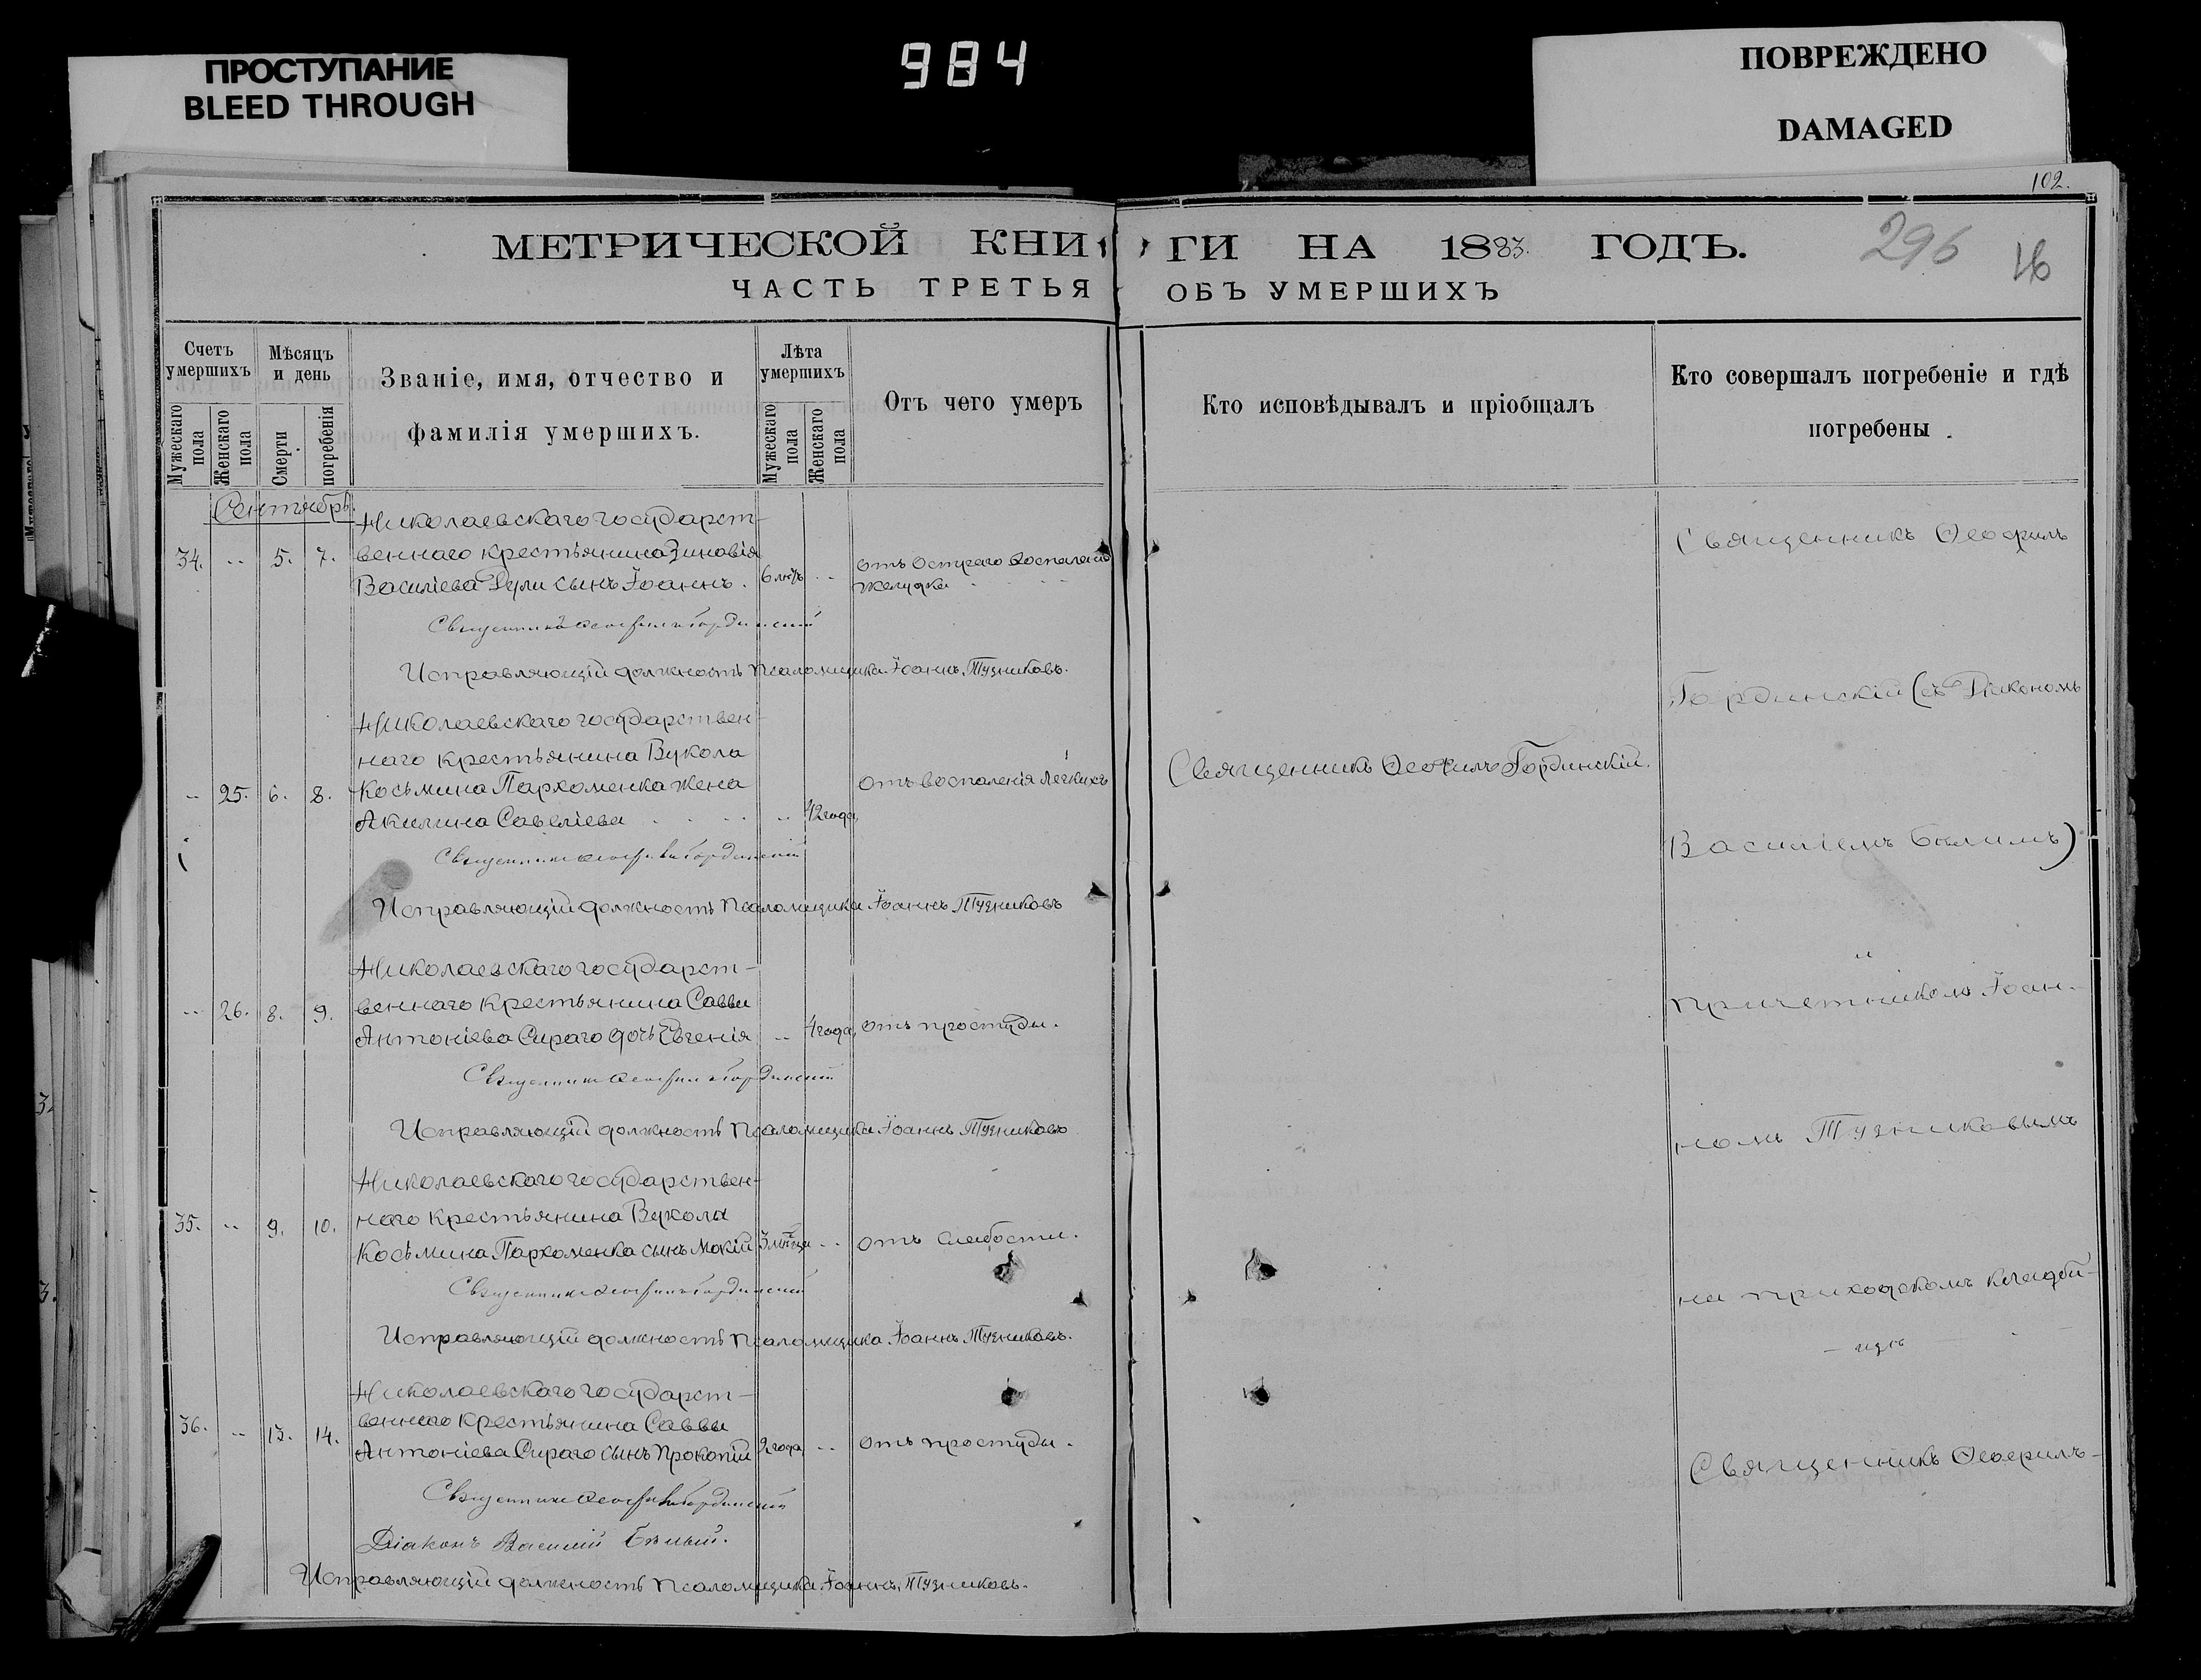 ПРОСТУПАНИЕ
BLEED THROUGH
984
ПОВРЕЖДЕНО
DAMAGED
102.
МЕТРИЧЕСКОЙ КНИГИ НА 1883 ГОДЪ.
296
ЧАСТЬ ТРЕТЬЯ ОБЪ УМЕРШИХЪ
Счетъ умершихъ
Мужескаго пола
Женскаго пола
Мѣсяцъ и день
Смерти
погребенія
Званіе, имя, отчество и
фамилія умершихъ.
Лѣта умершихъ
Мужескаго пола
Женскаго пола
Отъ чего умеръ
Кто исповѣдывалъ и пріобщалъ
Кто совершалъ погребеніе и гдѣ
погребены
Сентябрь.
Николаевскаго государст-
34. -- 5. 7. веннаго крестьянина Зиновія
Василіева Дули сынъ Іоаннъ. 6 лѣтъ -- отъ Остраго воспаленія
желудка
Священникъ Ѳеофилъ Гординскій
Исправляющій должность Псаломщика Іоаннъ Тузниковъ.
Николаевскаго государствен-
наго крестьянина Вукола
-- 25. 6. 8. Косьмина Пархоменка жена отъ воспаленія лёгкихъ
Акилина Савеліева -- 42 года,
Священникъ Ѳеофилъ Гординскій.
Священникъ Ѳеофилъ Гординскій
Исправляющій должность Псаломщика Іоаннъ Тузниковъ
Николаевскаго государст-
-- 26. 8. 9. веннаго крестьянина Саввы
Антоніева Сираго дочь Евгенія -- 4 года, отъ простуды.
Священникъ Ѳеофилъ Гординскій
Исправляющій должность Псаломщика Іоаннъ Тузниковъ
Николаевскаго государствен-
35. -- 9. 10. наго крестьянина Вукола
Косьмина Пархоменка сынъ Мокій 3 мѣсяца -- отъ слабости.
Священникъ Ѳеофилъ Гординскій
Исправляющій должность Псаломщика Іоаннъ Тузниковъ.
Николаевскаго государст-
36. -- 13. 14. веннаго крестьянина Саввы
Антоніева Сираго сынъ Прокопій 2 года -- отъ простуды.
Священникъ Ѳеофилъ Гординскій
Діаконъ Василій Бѣлый.
Исправляющій должность Псаломщика Іоаннъ Тузниковъ.
Священникъ Ѳеофилъ
Гординскій (съ Діакономъ
Василіемъ Бѣлымъ)
и
причетникомъ Іоан-
номъ Тузниковымъ
на приходскомъ кладби-
щѣ
Священникъ Ѳеофилъ-